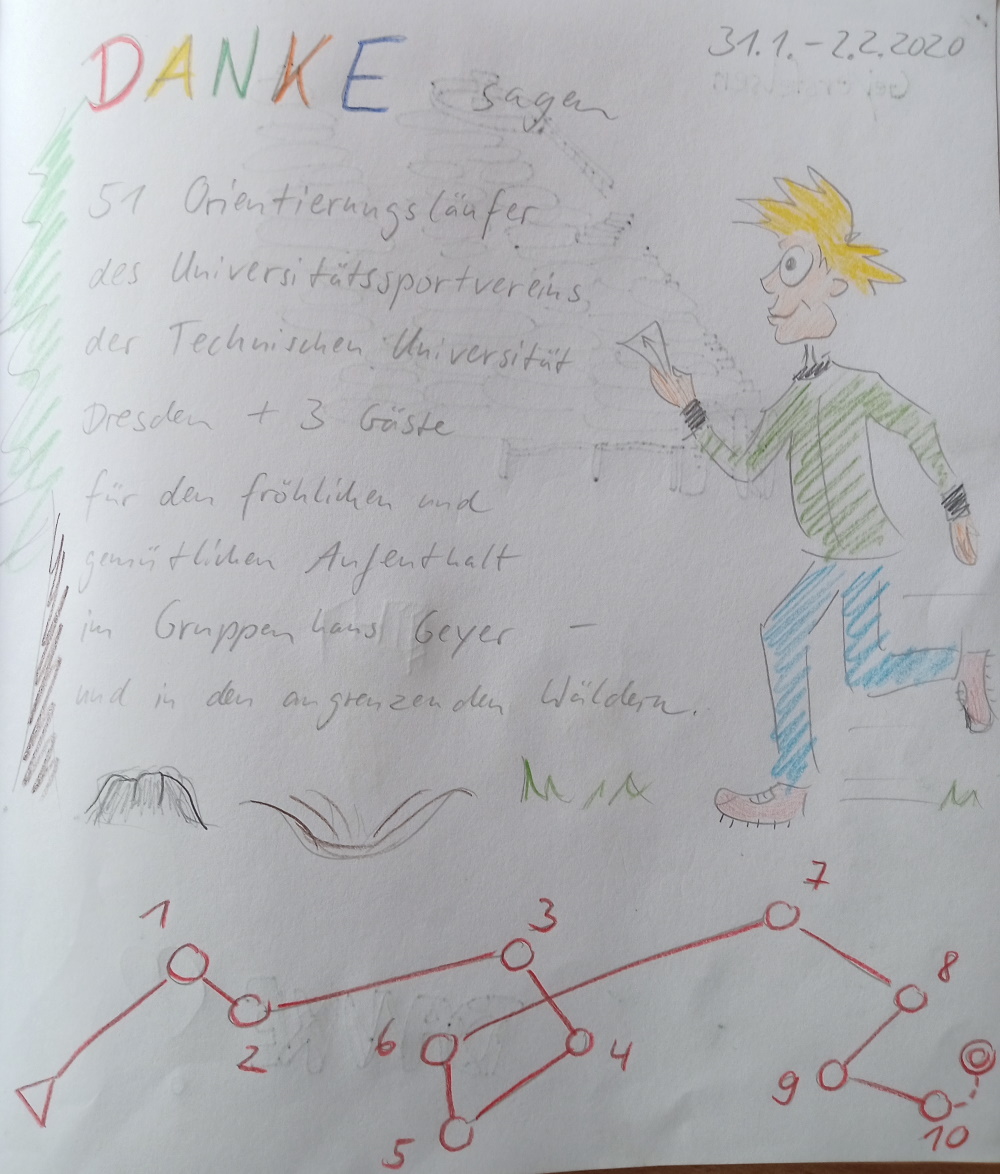 DANKE sagen
31.1. - 2.2.2020
51 Orientierungsläufer
des Universitätssportvereins
der Technischen Universität
Dresden + 3 Gäste
für den fröhlichen und
gemütlichen Aufenthalt
im Gruppenhaus Geyer –
und in den angrenzenden Wäldern.
1
2
3
4
5
6
7
8
9
10